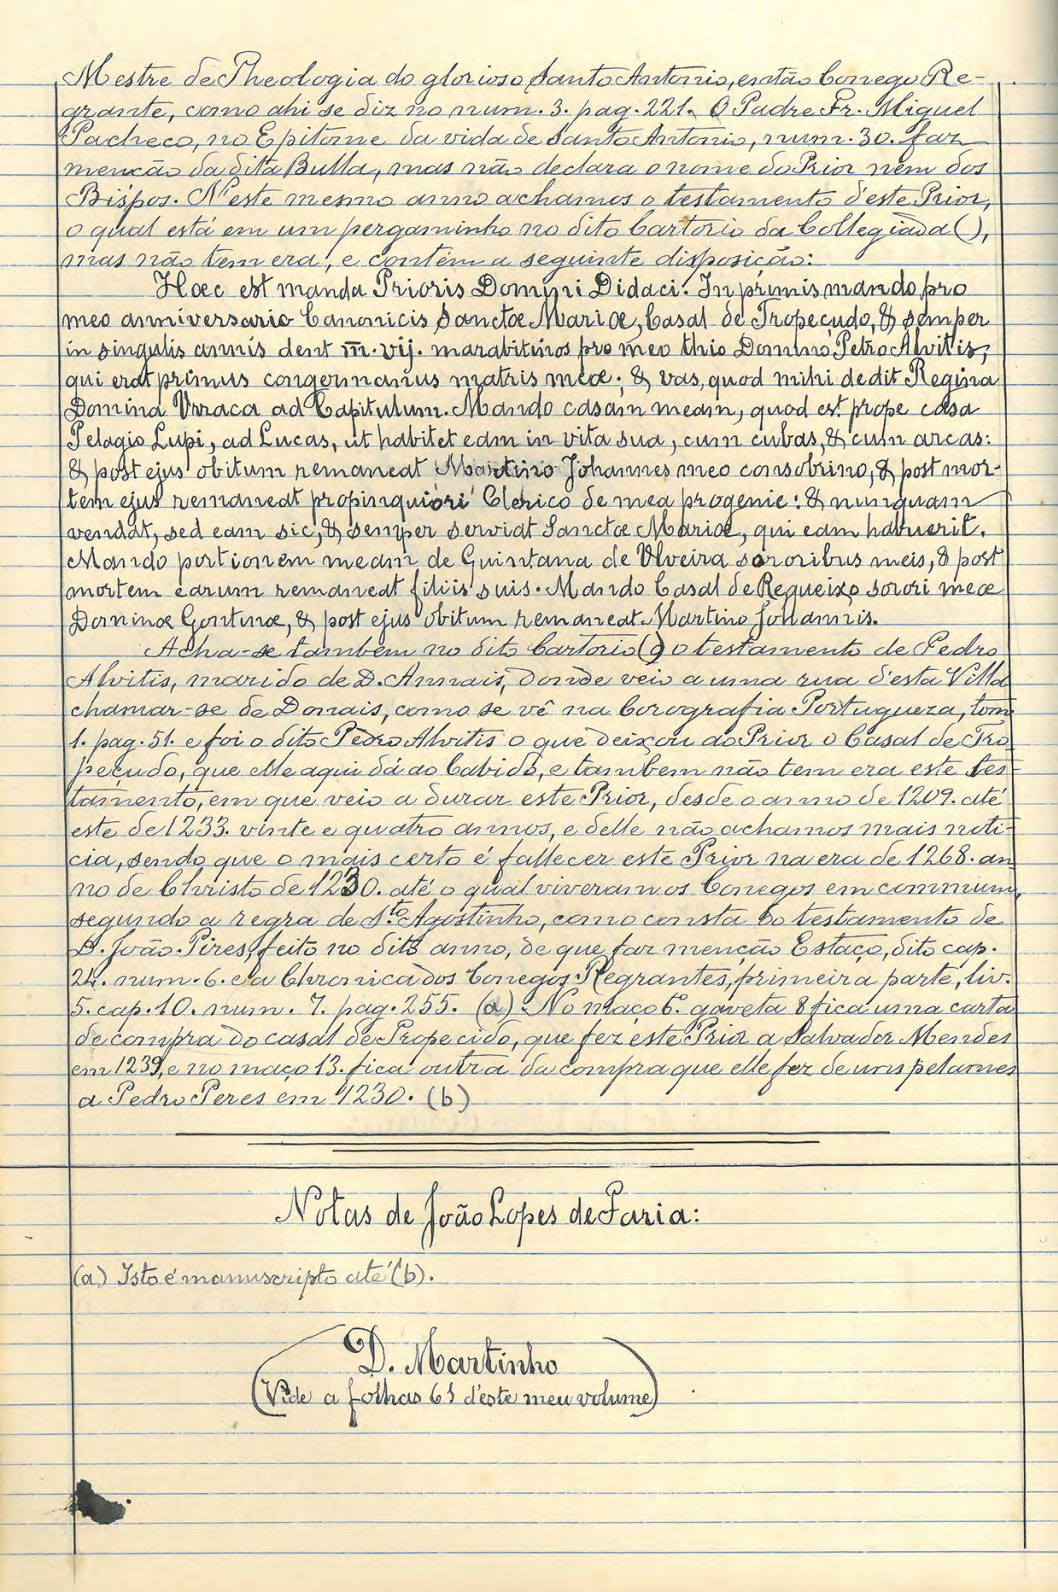 Mestre de Theologia do glorioso Santo Antonio, então Conego Re-
grante, como ahi se diz no num. 3. pag. 221. O Padre Fr. Miguel
Pacheco, no Epitome da vida de Santo Antonio, num. 30. faz
menção da dita Bulla, mas não declara o nome do Prior nem dos
Bispos. N'este mesmo anno achamos o testamento d'este Prior,
o qual está em um pergaminho no dito Cartorio da Collegiada ( ),
mas não tem era, e contém a seguinte disposição:
Hoec est manda Prioris Domini Didaci. In primis mando pro
meo anniversario Canonicis Sanctoe Marioe, Casal de Tropecudo, & semper
in singulis annis dent m. vij. marabitinos pro meo thio Domino Petro Alvitis,
qui erat primus congermanus matris meoe; & vas, quod mihi dedit Regina
Domina Vrraca ad Capitulum. Mando casam meam, quod est prope casa
Pelagio Lupi, ad Lucas, ut habitet eam in vita sua, cum cubas, & cum arcas:
& post ejus obitum remaneat Martino Johannes meo consobrino, & post mor-
tem ejus remaneat propinquiori Clerico de mea progenie: & nunquam
vendat, sed eam sic, & semper serviat Sanctoe Marioe, qui eam habuerit.
Mando portionem meam de Guintana de Vlveira sororibus meis, & post
mortem earum remaneat filiis suis. Mando Casal de Requeixo sorori meoe
Dominoe Gontinoe, & post ejus obitum remaneat Martino Johannis.
Acha-se tambem no dito Cartorio ( ) o testamento de Pedro
Alvitis, marido de D. Annais, donde veio a uma rua d'esta Villa
chamar-se de Donais, como se vê na Corografia Portugueza, tom
1. pag. 51. e foi o dito Pedro Alvitis o que deixou ao Prior o Casal de Tro
peçudo, que elle aqui dá ao Cabido, e tambem não tem era este tes-
tamento, em que veio a durar este Prior, desde o anno de 1209. até
este de 1233. vinte e quatro annos, e delle não achamos mais noti-
cia, sendo que o mais certo é fallecer este Prior na era de 1268. an
no de Christo de 1230. até o qual viveram os Conegos em commum,
segundo a regra de Sto. Agostinho, como consta do testamento de
D. João Pires, feito no dito anno, de que faz menção Estaço, dito cap.
24. num. 6. e a Chronica dos Conegos Regrantes, primeira parte, liv.
5. cap. 10. num. 7. pag. 255. (a) No maço 6º. gaveta 8 fica uma carta
de compra do casal de Tropecido, que fez este Prior a Salvador Mendes
em 1239, e no maço 13. fica outra da compra que elle fez de uns pelames
a Pedro Peres em 1230. (b)
Notas de João Lopes de Faria:
(a) Isto é manuscripto até (b).
D. Martinho
(Vide a folhas 61 d'este meu volume)